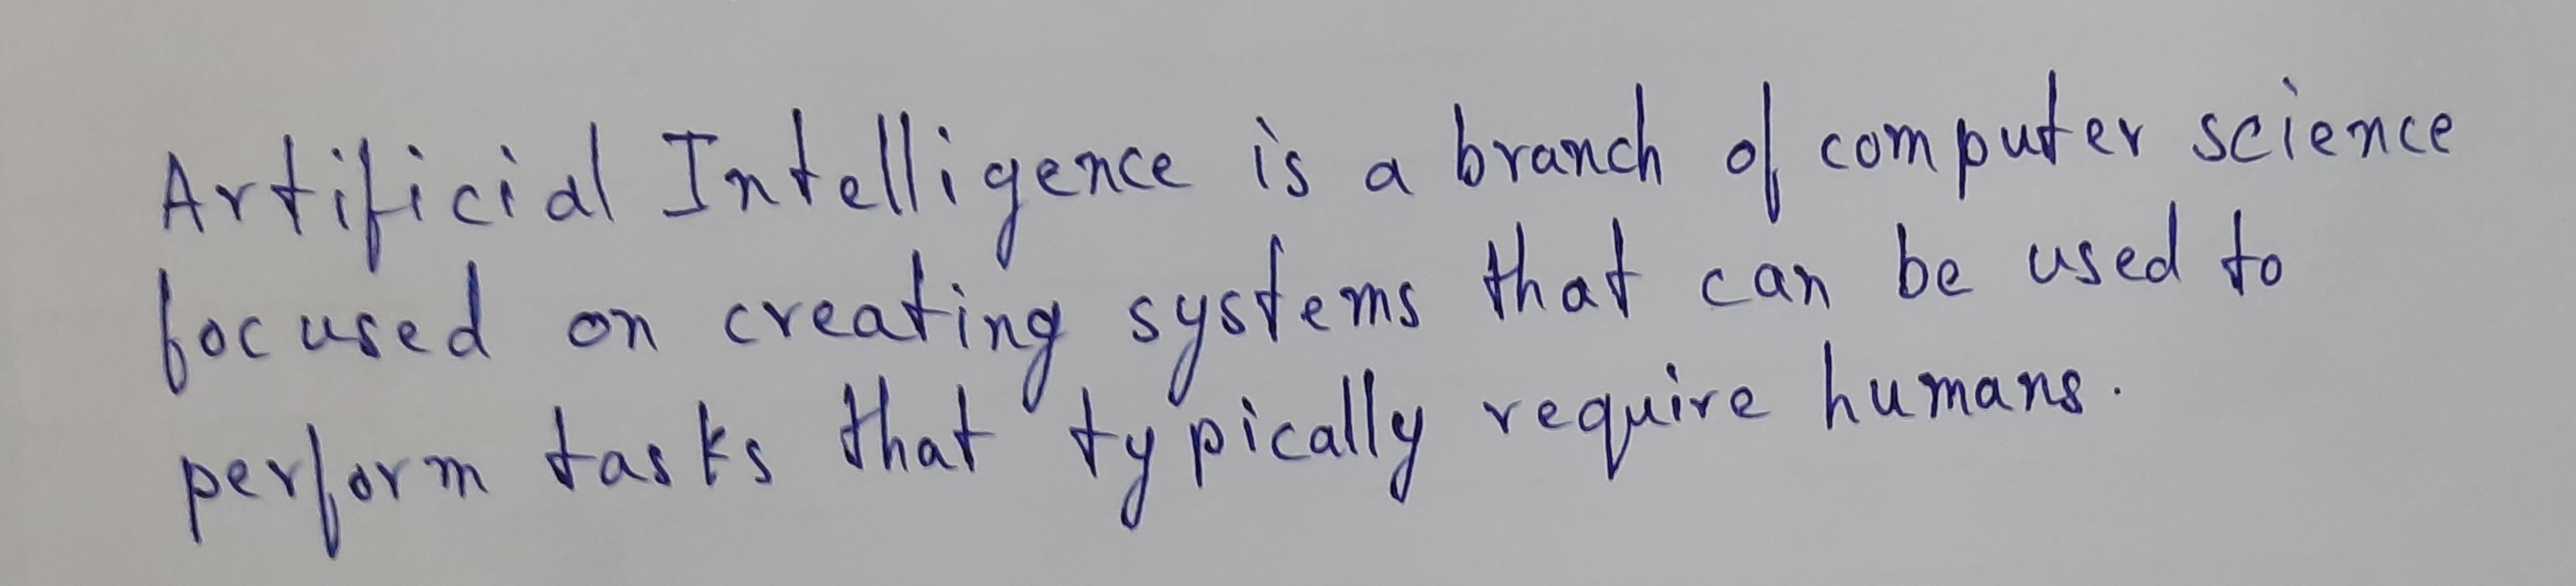 Artificial Intelligence is a branch of computer science
focused on creating systems that can be used to
perform tasks that typically require humans.